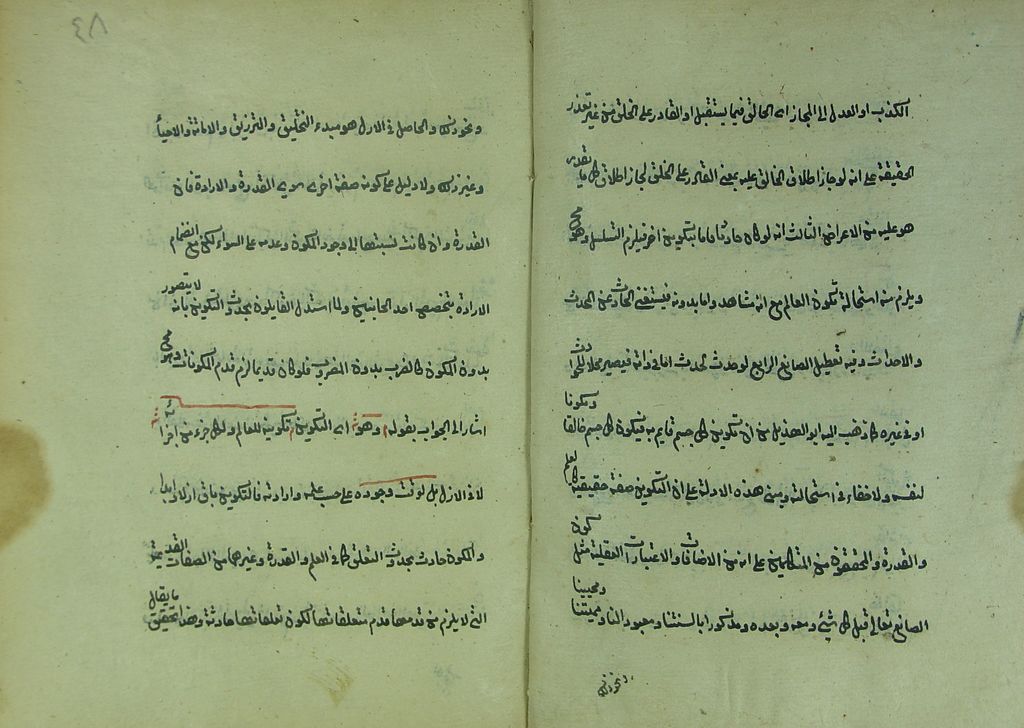 الكذب او العدول الى المجاز اى الخالق فيما يستقبل او القادر على الخلق من غير تعذر
الحقيقة على انه لو جاز اطلاق الخالق عليه بمعنى القادر على الخلق لجاز اطلاق كل ما يقدر
هو عليه من الاعراض الثالث انه لو كان حادثا فاما بتكوين اخر فيلزم التسلسل وهو مح
ويلزم منه استحالة تكون العالم مع انه مشاهد واما بدونه فيستغنى الحادث عن المحدث
والاحداث وفيه تعطيل الصانع الرابع لو حدث لحدث اما فى ذاته فيصير محلا للحوادث
او فى غيره كما ذهب اليه ابو الهذيل من ان تكوين كل جسم قايم به فيكون كل جسم خالقا ومكونا
لنفسه ولا خفاء فى استحالته ومبنى هذه الادلة على ان التكوين صفة حقيقية كالعلم
والقدرة والمحققون من المتكلمين على انه من الاضافات والاعتبارات العقلية مثل كون
الصانع تعالى قبل كل شئ ومعه وبعده ومذكورا بالسنتنا ومعبودا لنا ومميتنا ومحيينا
ونحو ذلك
٤٨
ونحو ذلك والحاصل فى الازل هو مبدء التخليق والترزيق والاماتة والاحياء
وغير ذلك ولا دليل على كونه صفة اخرى سوى القدرة والارادة فان
القدرة وان كانت نسبتها الى وجود المكون وعدمه على السواء لكن مع انضمام
الارادة يتخصص احد الجانبين ولما استدل القايلون بحدوث التكوين بانه لا يتصور
بدون المكون كالضرب بدون المضروب فلو كان قديما لزم قدم المكونات وهو مح
اشار الى الجواب بقوله وهو اى التكوين تكوينه للعالم ولكل جزء من اجزائه
لا فى الازل بل لوقت وجوده على حسب علمه وارادته فالتكوين باق ازلا وابدا
والمكون حادث بحدوث التعلق كما فى العلم والقدرة وغيرهما من الصفات القديمة
التى لا يلزم من قدمها قدم متعلقاتها لكون تعلقاتها حادثة وهذا تحقيق ما يقال